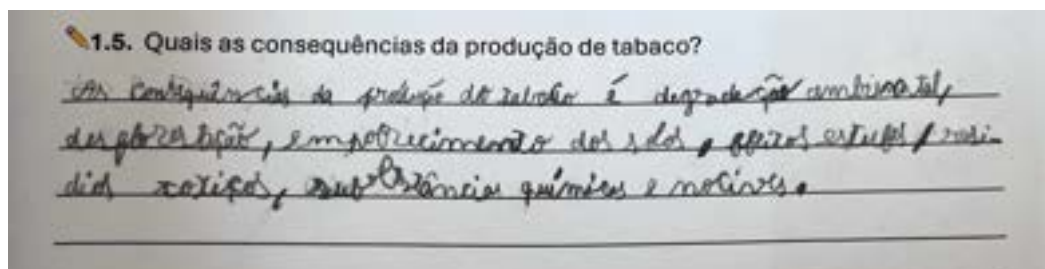 1.5. Quais as consequências da produção de tabaco?
As consequências da produção do tabaco é degradação ambinotal,
desflorestação, empobrecimento dos solos, estufas
tóxicos, substâncias químicas e nocivas.